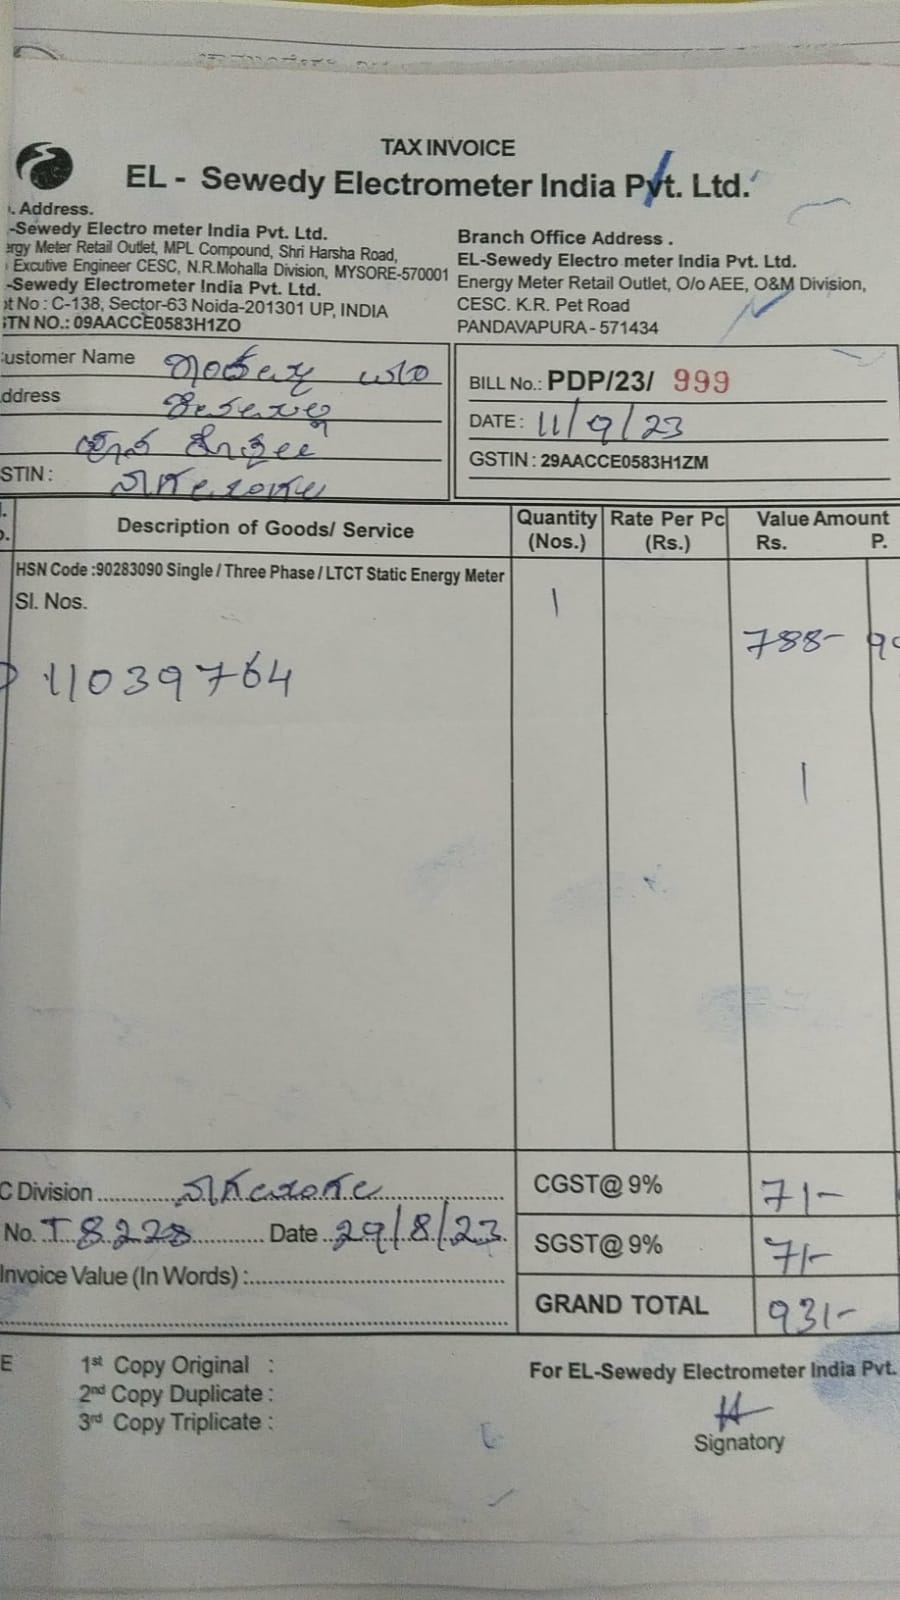 TAX INVOICE
EL - Sewedy Electrometer India Pvt. Ltd.
. Address.
-Sewedy Electro meter India Pvt. Ltd.
ergy Meter Retail Outlet, MPL Compound, Shri Harsha Road,
Excutive Engineer CESC, N.R.Mohalla Division, MYSORE-570001
-Sewedy Electrometer India Pvt. Ltd.
ot No : C-138, Sector-63 Noida-201301 UP, INDIA
STN NO.: 09AACCE0583H1ZO
Branch Office Address .
EL-Sewedy Electro meter India Pvt. Ltd.
Energy Meter Retail Outlet, O/o AEE, O&M Division,
CESC. K.R. Pet Road
PANDAVAPURA - 571434
ustomer Name
ddress
STIN :
BILL No.: PDP/23/ 999
DATE : 11/9/23
GSTIN : 29AACCE0583H1ZM
Description of Goods/ Service Quantity (Nos.) Rate Per Pc (Rs.) Value Amount Rs. P.
HSN Code :90283090 Single / Three Phase / LTCT Static Energy Meter
Sl. Nos. 1
788-
11039764
C Division
No. T 8228 Date 29/8/23
Invoice Value (In Words) :
CGST@ 9% 71-
SGST@ 9% 71-
GRAND TOTAL 931-
E 1st Copy Original :
2nd Copy Duplicate :
3rd Copy Triplicate :
For EL-Sewedy Electrometer India Pvt.
Signatory